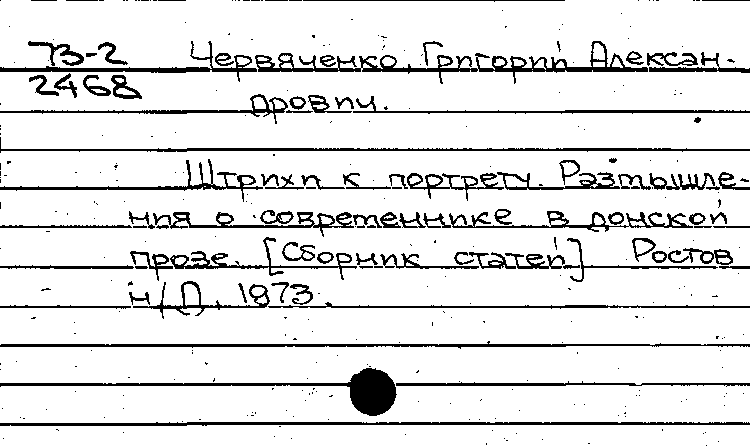 73-2 Червяченко, Григорий Алексан-
2468 дрович.
Штрихи к портрету. Размышле-
ния о современнике в донской
прозе. [Сборник статей] Ростов
н/Д, 1973.